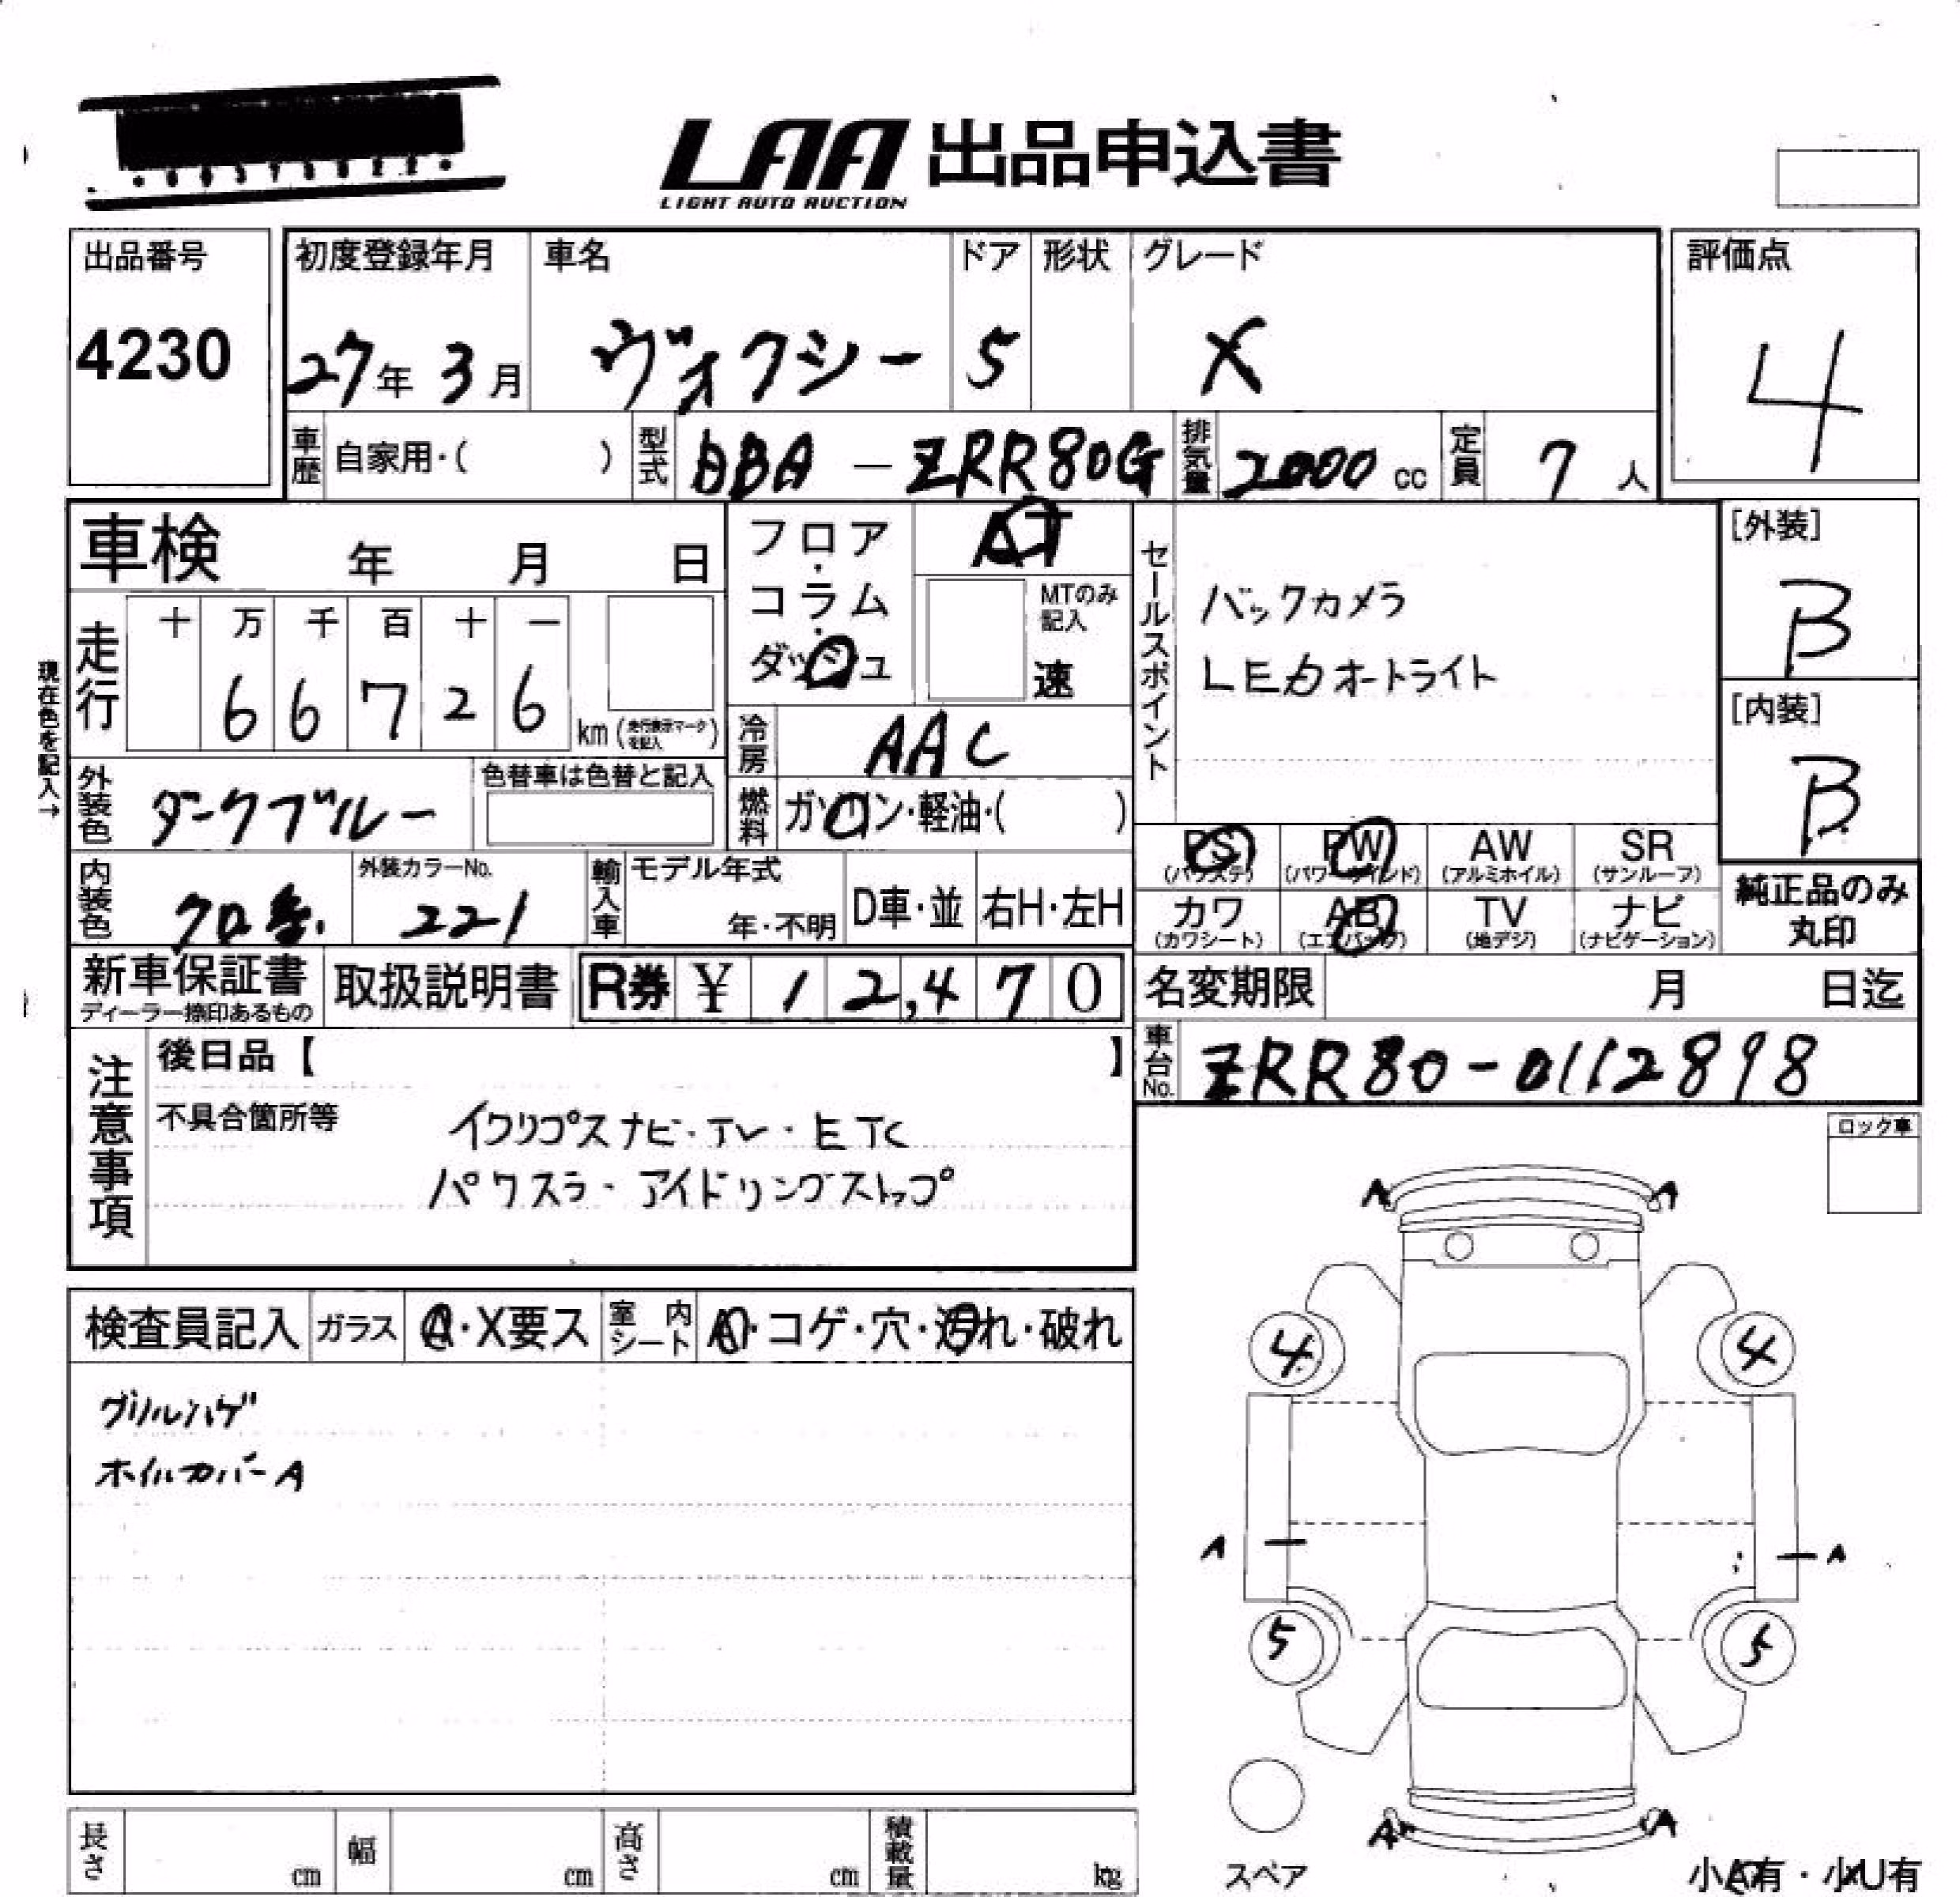 LAA 出品申込書
LIGHT AUTO AUCTION
出品番号
4230
初度登録年月
27年 3月
車名
ヴォクシー
ドア
5
形状
グレード
X
評価点
4
車歴 自家用・( )
型式 DBA － ZRR80G
排気量 2000 cc
定員 7 人
車検 年 月 日
フロア・コラム・ダッシュ
AT
MTのみ記入
速
セールスポイント
バックカメラ
LEDオートライト
[外装]
B
[内装]
B
現在色を記入→
走行
十 万 千 百 十 一
6 6 7 2 6
km (走行表示マークを記入)
冷房 AAC
外装色 ダークブルー
色替車は色替と記入
燃料 ガソリン・軽油・( )
PS (パワステ)
PW (パワーウインド)
AW (アルミホイル)
SR (サンルーフ)
カワ (カワシート)
AB (エアバッグ)
TV (地デジ)
ナビ (ナビゲーション)
純正品のみ
丸印
内装色 クロ系
外装カラーNo.
221
輸入車
モデル年式
年・不明
D車・並
右H・左H
新車保証書
ディーラー捺印あるもの
取扱説明書
R券 ¥ 12,470
名変期限 月 日迄
車台No. ZRR80-0112898
注意事項
後日品【 】
不具合箇所等
イクリプスナビ・TV・ETC
パワスラ・アイドリングストップ
ロック車
検査員記入
ガラス A・X要ス
室内シート A・コゲ・穴・汚れ・破れ
グリルハゲ
ホイルカバーA
A A
4 4
A A
5 5
A A
スペア
小A有・小U有
長さ cm
幅 cm
高さ cm
積載量 kg